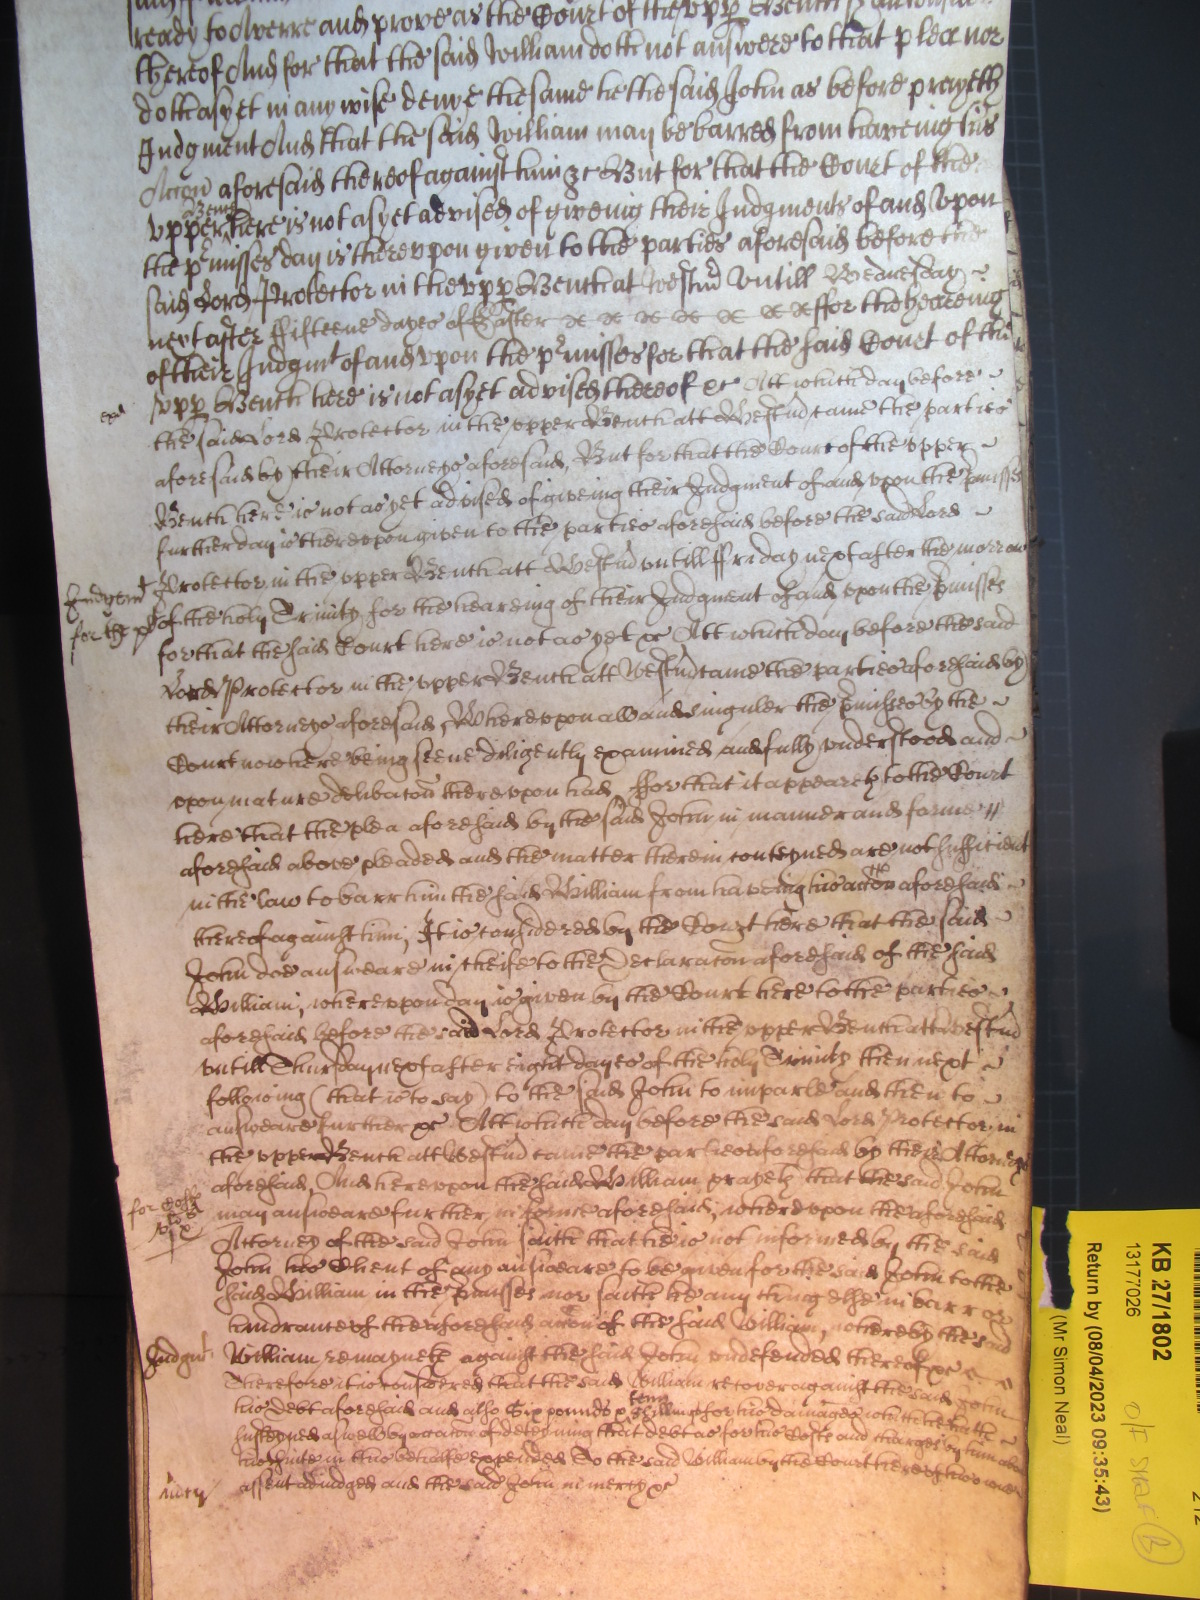 ready to Averre and prove as the Court of the upp Bench
thereof And for that the said William doth not answere to that plea nor
doth as yet in any wise denye the same he the said John as before prayeth
Judgment And that the said William may be barred from haveing his
Accon aforesaid thereof against him &c But for that the Court of the
upper Bench here is not as yet advised of giveing their Judgments of and upon
the pmisses day is thereupon given to the parties aforesaid before the
said Lord Protector in the upp Bench at Westm Untill Wednesday
next after Fifteene dayes of Easter ffor the heareing
of their Judgmt of and upon the pmisses for that the said Court of the
upp Bench here is not as yet advised thereof &c Att which day before
the said Lord Protector in the upper Bench att Westm came the parties
aforesaid by their Attorneys aforesaid, But for that the Court of the upper
Bench here is not as yet advised of giveing their Judgment of and upon the pmisses
further day is thereupon given to the parties aforesaid before the said Lord
Protector in the upper Bench att Westm untill ffriday next after the morrow
Judgemt
for the pl
of the holy Trinity for the heareing of their Judgment of and upon the pmisses
for that the said Court here is not as yet &c Att which day before the said
Lord Protector in the upper Bench att Westm came the parties aforesaid by
their Attorneys aforesaid, Whereupon all and singuler the pmisses by the
Court now here being seene diligently examined and fully understood and
upon mature delibacon thereupon had ffor that it appeareth to the Court
here that the plea aforesaid by the said John in manner and forme
aforesaid above pleaded and the matter therein conteyned are not sufficient
in the law to barr him the said William from haveing his accon aforesaid
thereof against him, It is considered by the Court here that the said
John doe answeare in cheife to the Declaracon aforesaid of the said
William, whereupon day is given by the Court here to the parties
aforesaid before the said Lord Protector in the upper Bench att Westm
untill Thursday next after eight dayes of the holy Trinity then next
following (that is to say) to the said John to imparle and then to
answeare further &c Att which day before the said Lord Protector in
the upper Bench att Westm came the parties aforesaid by their Attorneys
aforesaid, And hereupon the said William prayeth that the said John
may answeare further in forme aforesaid, whereupon the aforesaid
Attorney of the said John saith that he is not informed by the said
John his Client of any answeare to be given for the said John to the
said William in the pmisses nor saith he any thing else in barr or
hindrance of the aforesaid accon of the said William, whereby the said
Judgmt
William remayneth against the said John undefended thereof &c
Therefore it is considered that the said William recover against the said John
his debt aforesaid and also Six pounds & tenn Shillings for his damages which he hath
susteyned aswell by occasion of deteyning that debt as for his Costs and charges by him about
his suite in this behalfe expended To the said William by the Court here of his owne
mcy
assent adiudged and the said John in mercy &c
KB 27/1802
13177026
Return by (08/04/2023 09:35:43)
(Mr Simon Neal)